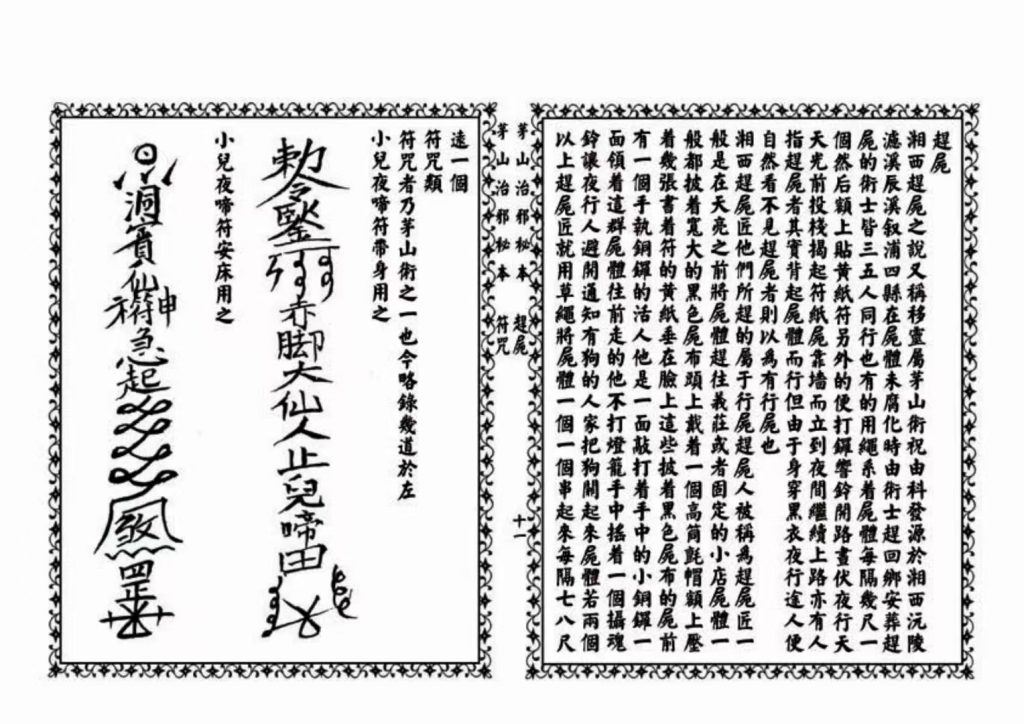 趕屍
湘西趕屍之說又稱移靈屬茅山術祝由科發源於湘西沅陵
瀘溪辰溪叙浦四縣在屍體未腐化時由術士趕回鄉安葬趕
屍的術士皆三五人同行也有的用繩系着屍體每隔幾尺一
個然后額上貼黄紙符另外的便打鑼響鈴開路晝伏夜行天
天光前投棧揭起符紙屍靠墙而立到夜間繼續上路亦有人
指趕屍者其實背起屍體而行但由于身穿黑衣夜行途人便
自然看不見趕屍者則以為有行屍也
湘西趕屍匠他們所趕的屬于行屍趕屍人被稱為趕屍匠一
般是在天亮之前將屍體趕往義莊或者固定的小店屍體一
般都披着寬大的黑色屍布頭上戴着一個高筒氈帽額上壓
着幾張書着符的黄紙垂在臉上這些披着黑色屍布的屍前
有一個手執銅鑼的活人他是一面敲打着手中的小銅鑼一
面領着這群屍體往前走的他不打燈籠手中摇着一個攝魂
鈴讓夜行人避開通知有狗的人家把狗關起來屍體若兩個
以上趕屍匠就用草繩將屍體一個一個串起來每隔七八尺
茅山治邪秘本 趕屍 十一
茅山治邪秘本 符咒
遠一個
符咒類
符咒者乃茅山術之一也今略錄幾道於左
小兒夜啼符帶身用之
勅令 赤脚大仙人止兒啼
小兒夜啼符安床用之
洞賓仙 神符急起 煞罡